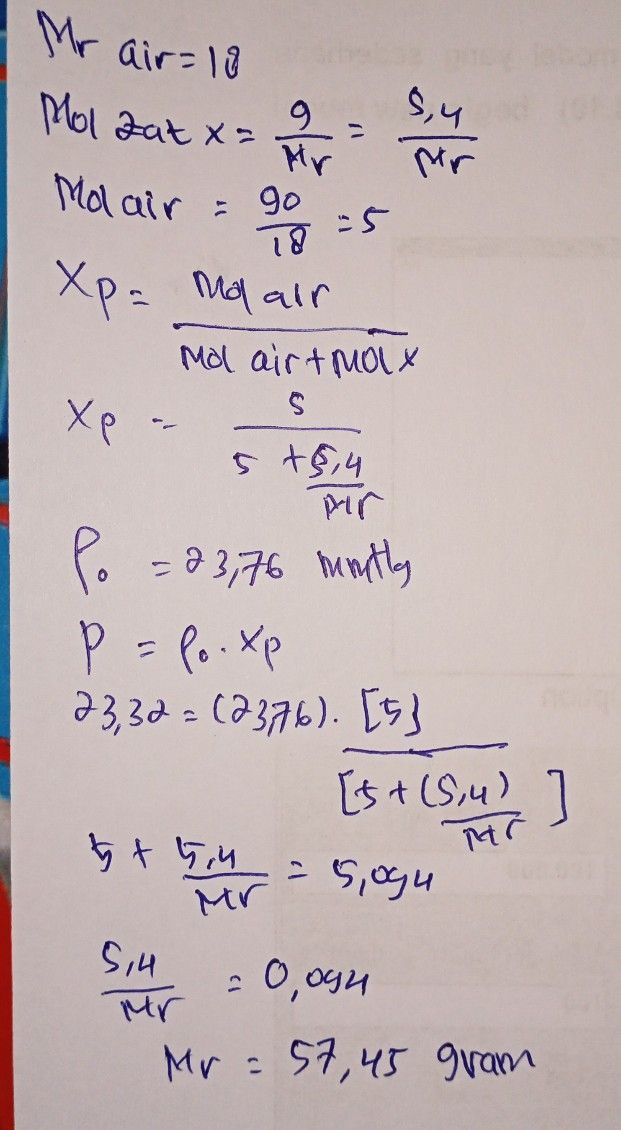 Mr air = 18
Mol zat x = 9/Mr = 5,4/Mr
Mol air = 90/18 = 5
Xp = Mol air / Mol air + Mol x
Xp = 5 / 5 + 5,4/Mr
Po = 23,76 mmHg
P = Po . Xp
23,32 = (23,76) . [5] / [5 + (5,4)/Mr]
5 + 5,4/Mr = 5,094
5,4/Mr = 0,094
Mr = 57,45 gram